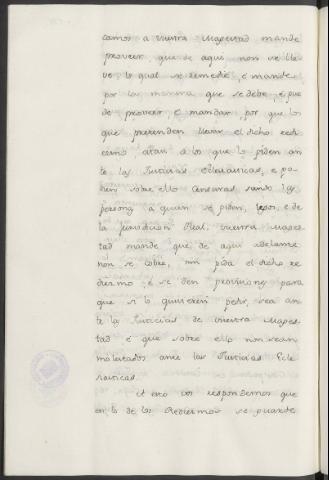 camos a vuestra Magestad mande
proveer, que de aqui non se lle
ve, lo qual se remedie, é mande
por la manera que se debe, é pue
de proveer, é mandar, por que los
que pretenden llevar el dicho redi
esmo, citan a los que lo piden an
te las Justicias Eclesiasticas, é po
nen sobre ello censuras sendo las
personas a quien se piden, legos, é de
la jurisdicion Real, vuestra Mages
tad mande que de aqui adelante
non se cobre, nin pida el dicho re
diezmo, é se den provisiones para
que si lo quisieren pedir, sea an
te las Justicias de vuestra Mages
tad é que sobre ello non sean
molestados ante las Justicias Ecle
siasticas.
A esto vos respondemos que
en lo de los Rediezmos se guarde